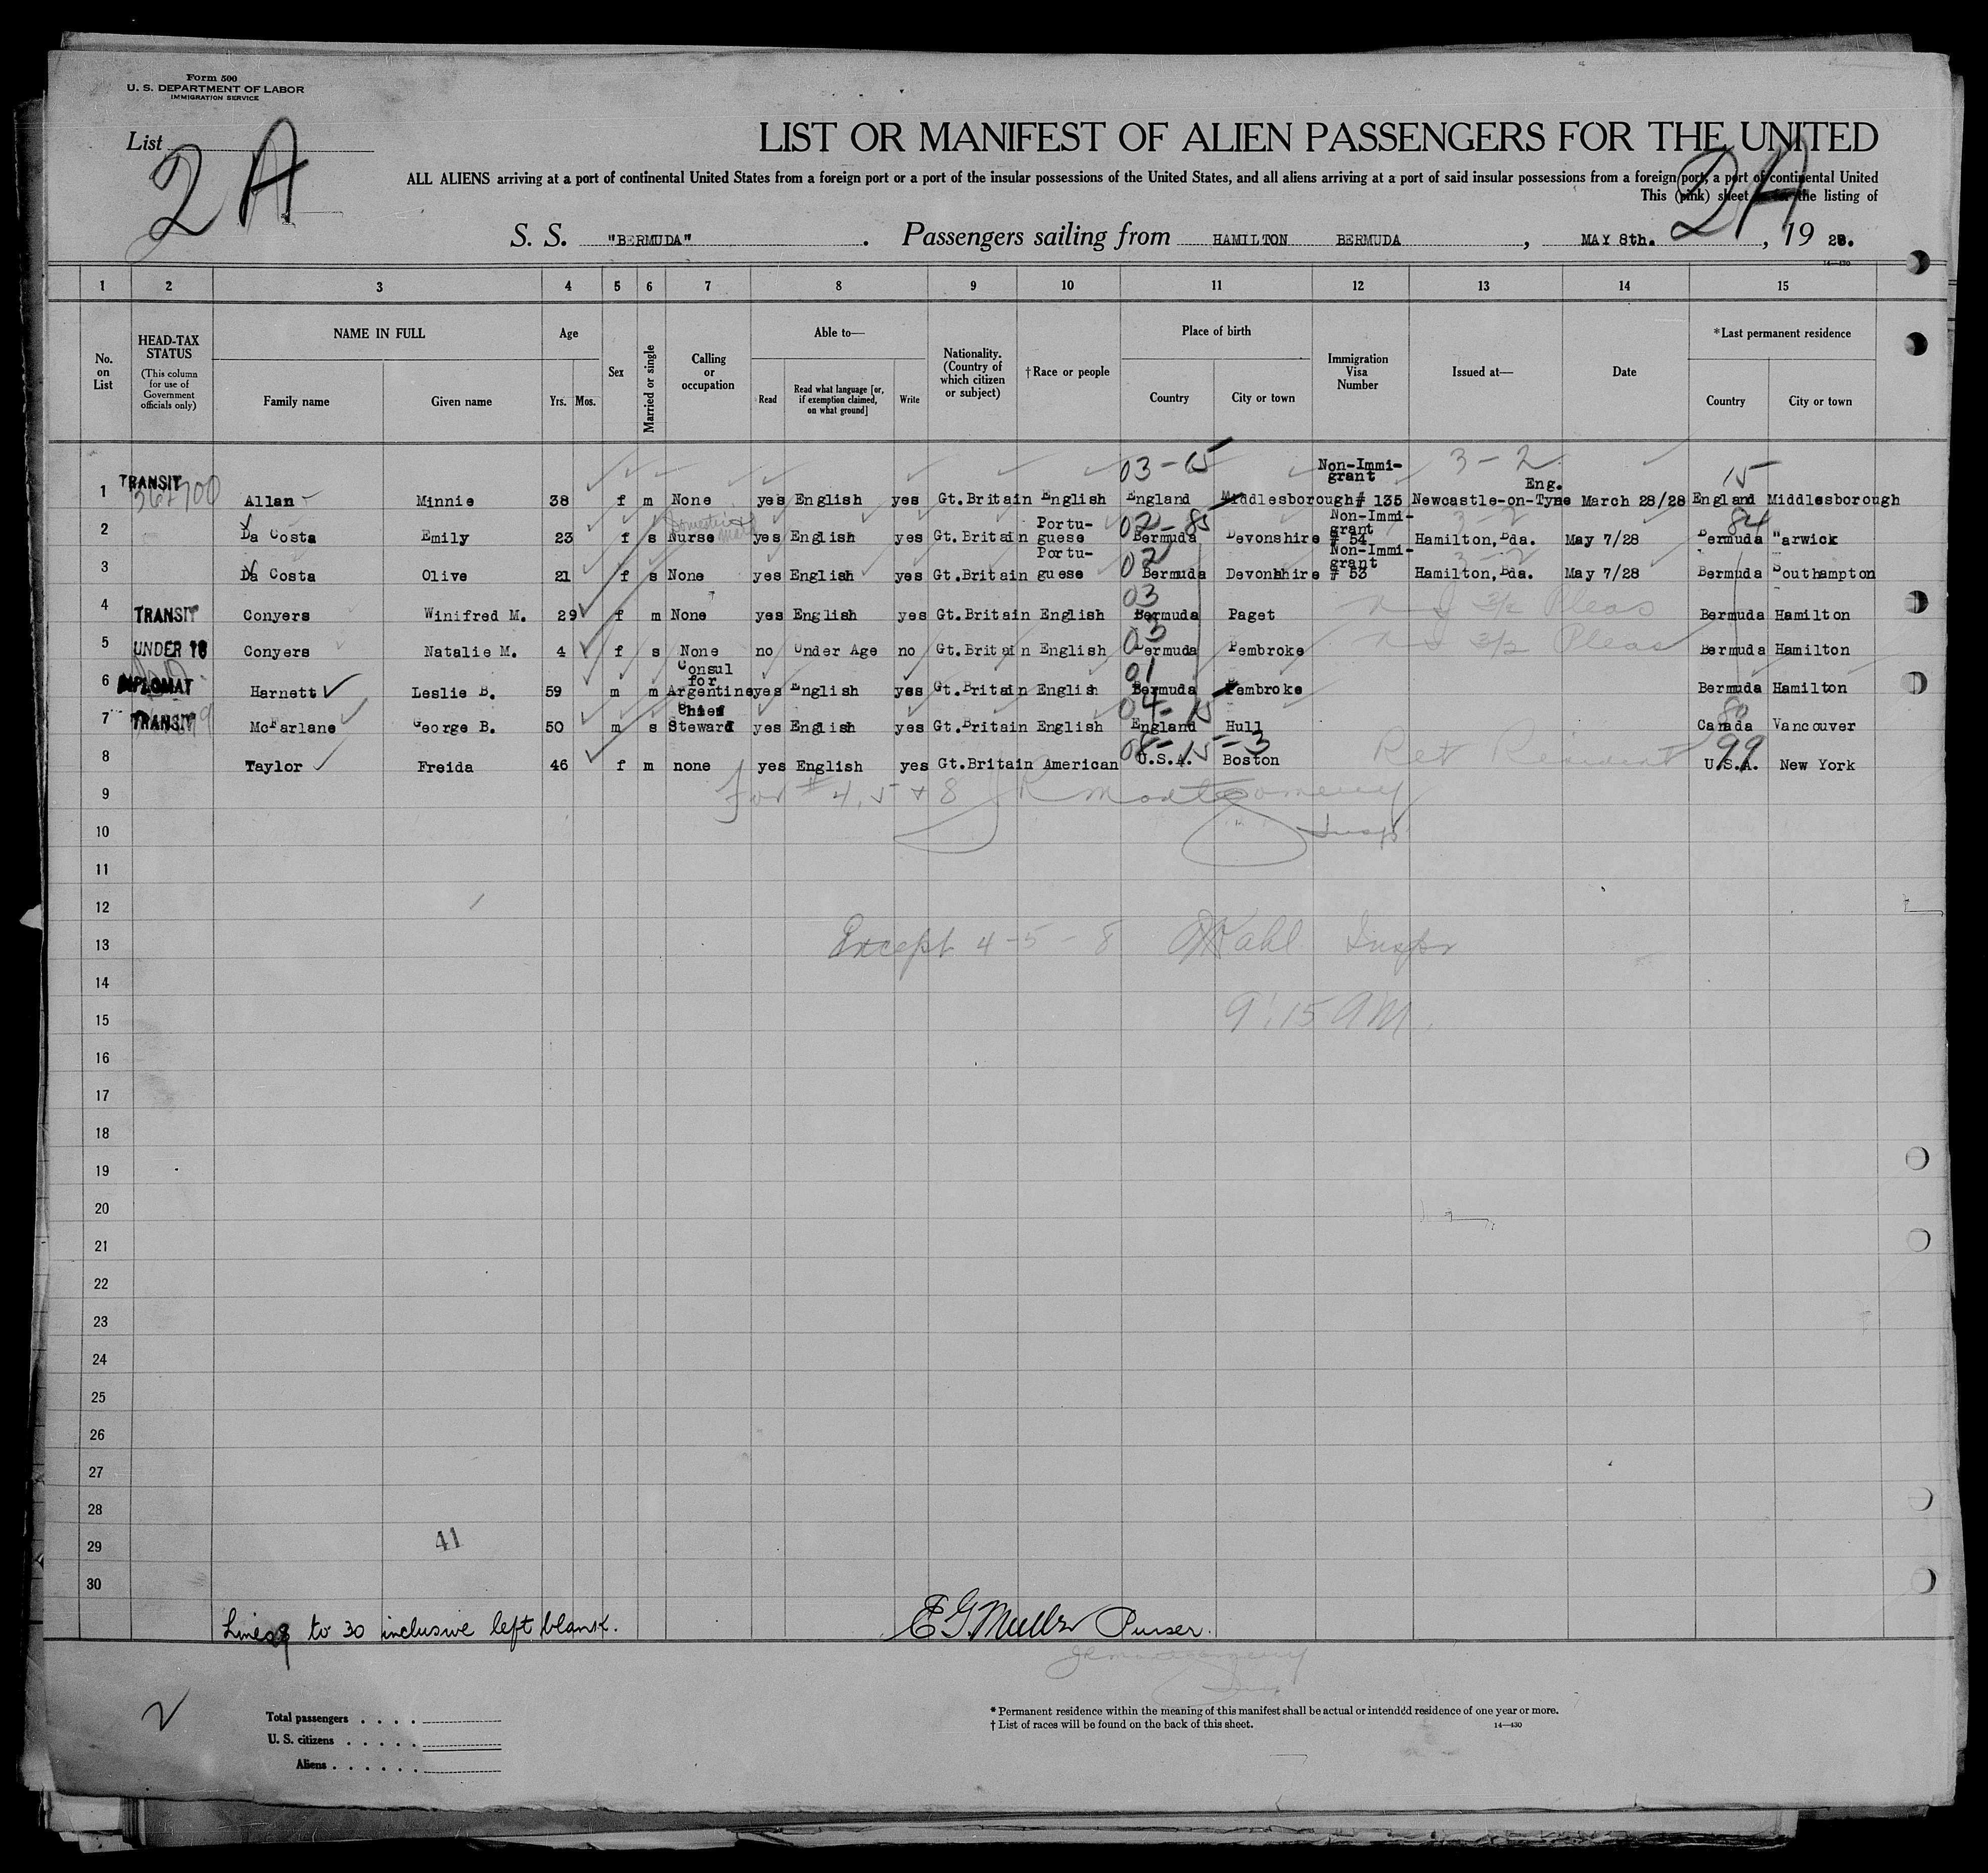 Form 500
U. S. DEPARTMENT OF LABOR
IMMIGRATION SERVICE
List
2 A
LIST OR MANIFEST OF ALIEN PASSENGERS FOR THE UNITED
ALL ALIENS arriving at a port of continental United States from a foreign port or a port of the insular possessions of the United States, and all aliens arriving at a port of said insular possessions from a foreign port, a port of continental United
This (pink) sheet is for the listing of
2A
S. S. "BERMUDA" . Passengers sailing from HAMILTON BERMUDA , MAY 8th. , 19 28.
14—430
1 2 3 4 5 6 7 8 9 10 11 12 13 14 15
No. on List
HEAD-TAX STATUS (This column for use of Government officials only)
NAME IN FULL
Family name Given name
Age
Yrs. Mos.
Sex
Married or single
Calling or occupation
Able to—
Read Read what language [or, if exemption claimed, on what ground] Write
Nationality. (Country of which citizen or subject)
†Race or people
Place of birth
Country City or town
Immigration Visa Number
Issued at—
Date
*Last permanent residence
Country City or town
03-15 Non-Immi-grant 3-2 15
1 TRANSIT Allan Minnie 38 f m None yes English yes Gt.Britain English England Middlesborough # 135 Newcastle-on-Tyne Eng. March 28/28 England Middlesborough
02-85 Non-Immi-grant 3-2 84
2 Da Costa Emily 23 f s Nurse yes English yes Gt.Britain Portu-guese Bermuda Devonshire # 54 Hamilton,Bda. May 7/28 Bermuda Warwick
02 Non-Immi-grant 3-2
3 Da Costa Olive 21 f s None yes English yes Gt.Britain Portu-guese Bermuda Devonshire # 53 Hamilton,Bda. May 7/28 Bermuda Southampton
03
4 TRANSIT Conyers Winifred M. 29 f m None yes English yes Gt.Britain English Bermuda Paget 3/2 Pleas Bermuda Hamilton
03
5 UNDER 16 Conyers Natalie M. 4 f s None no Under Age no Gt.Britain English Bermuda Pembroke 3/2 Pleas Bermuda Hamilton
01
6 DIPLOMAT Harnett Leslie B. 59 m m Consul for Argentine yes English yes Gt.Britain English Bermuda Pembroke Bermuda Hamilton
04-15 80
7 TRANSIT McFarlane George B. 50 m s Chief Steward yes English yes Gt.Britain English England Hull Canada Vancouver
08-15-3 99
8 Taylor Freida 46 f m none yes English yes Gt.Britain American U.S.A. Boston Ret Resident U.S.A. New York
9 For #4, 5 + 8 JR Montgomery
10 Insp
11
12
13 Except 4-5-8 Wahl Inspr
14
15 9:15 AM.
16
17
18
19
20
21
22
23
24
25
26
27
28
29 41
30
Lines 9 to 30 inclusive left blank. E G Muller Purser.
JR Montgomery
Total passengers . . . .
U. S. citizens . . . . .
Aliens . . . . . .
* Permanent residence within the meaning of this manifest shall be actual or intended residence of one year or more.
† List of races will be found on the back of this sheet. 14—430